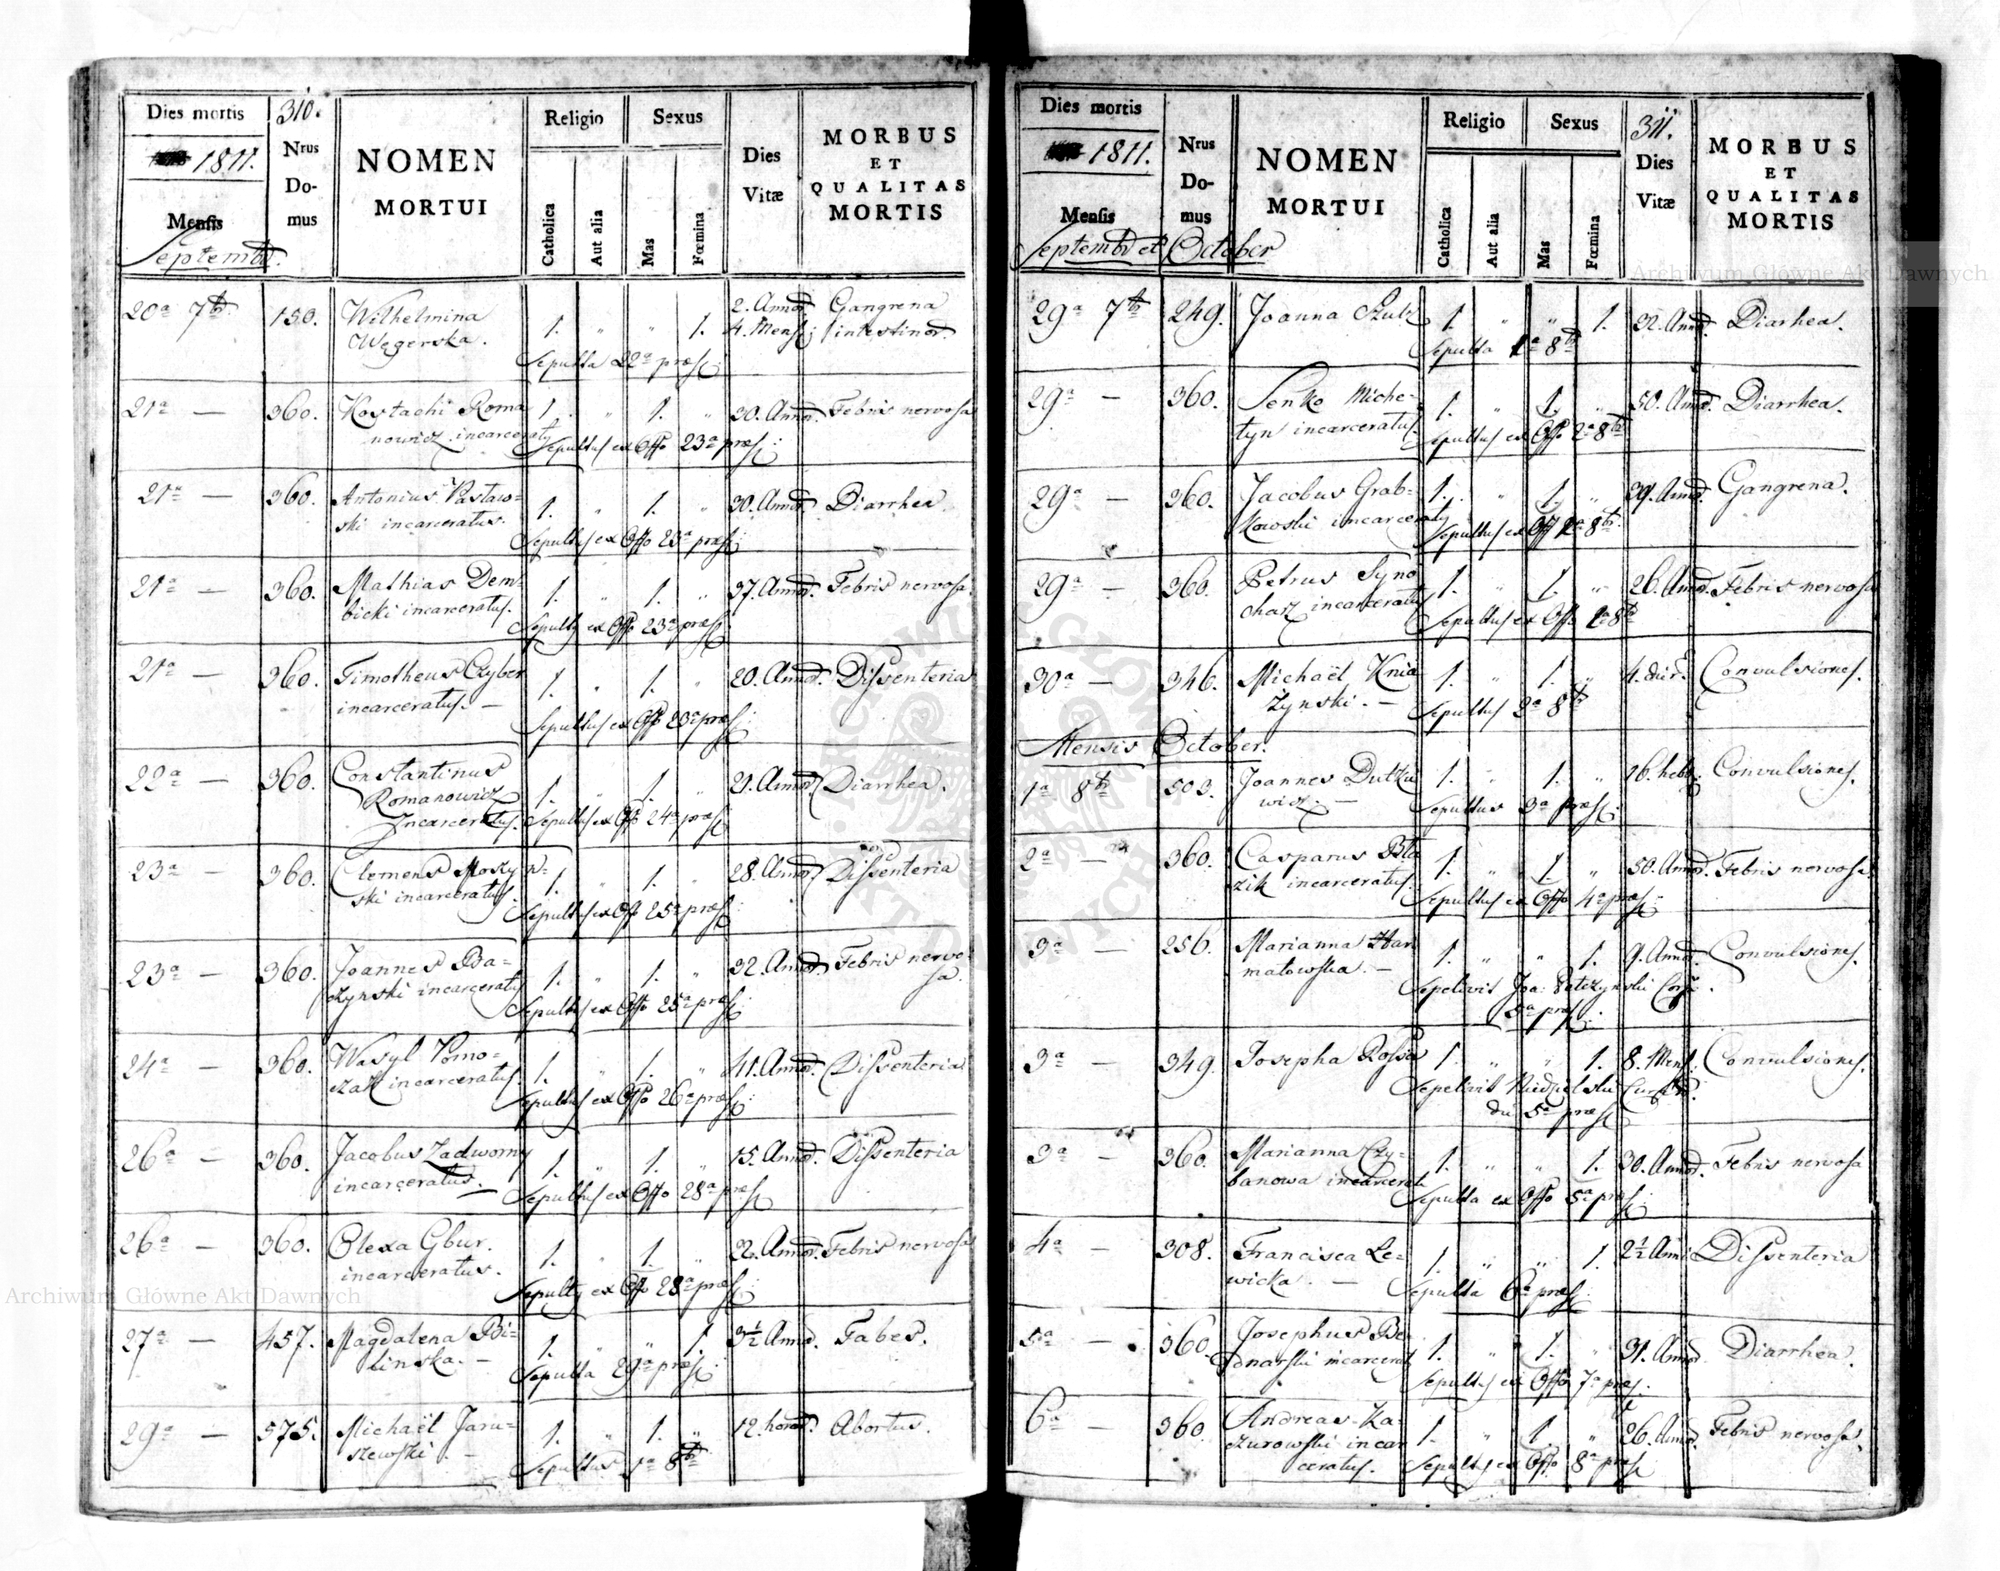 Dies mortis
310.
NOMEN
MORTUI
Religio
Sexus
Dies
Vitæ
MORBUS
ET
QUALITAS
MORTIS
1811.
Nrus
Do-
mus
Mensis
Septembr.
Catholica
Aut alia
Mas
Fœmina
20a 7br. 150. Wilhelmina 1. " " 1. 2. Annor. Gangrena
Wegerska. 4. Mens: intestinor.
Sepulta 22a præs:
21a — 360. Kostachi Roma 1. " 1. " 30. Annor. Febris nervosa
nowicz incarceratus
Sepultus ex Offo 23a præs:
21a — 360. Antonius Pastaw- 1. " 1. " 30. Annor. Diarrhea.
ski incarceratus.
Sepultus ex Offo 23a præs:
21a — 360. Mathias Dem- 1. " 1. " 37. Annor. Febris nervosa.
bicki incarceratus.
Sepultus ex Offo 23a præs:
21a — 360. Timotheus Czyber 1. " 1. " 20. Annor. Dissenteria
incarceratus. —
Sepultus ex Offo 23a præs:
22a — 360. Constantinus 1. " 1. " 21. Annor. Diarrhea.
Romanowicz
Incarceratus. Sepultus ex Offo 24a præs:
23a — 360. Clemens Moszyn- 1. " 1. " 28. Annor. Dissenteria
ski incarceratus.
Sepultus ex Offo 25a præs:
23a — 360. Joannes Ba- 1. " 1. " 32. Annor. Febris nervo-
czynski incarceratus sa.
Sepultus ex Offo 25a præs:
24a — 360. Wasyl Pomo- 1. " 1. " 41. Annor. Dissenteria
czak incarceratus.
Sepultus ex Offo 26a præs:
26a — 360. Jacobus Zadworny 1. " 1. " 15. Annor. Dissenteria
incarceratus. —
Sepultus ex Offo 28a præs:
26a — 360. Olexa Gbur. 1. " 1. " 22. Annor. Febris nervosa
incarceratus.
Sepultus ex Offo 28a præs:
27a — 457. Magdalena Bi- 1. " " 1. 3½ Annor. Tabes.
linska. —
Sepulta 29a præs:
29a — 575. Michaël Jaru- 1. " 1. " 12. horar. Abortus.
szewski. —
Sepultus 1a 8br
Dies mortis
1811.
Mensis
Septembr et October
Nrus
Do-
mus
NOMEN
MORTUI
Religio
Sexus
Catholica
Aut alia
Mas
Fœmina
311.
Dies
Vitæ
MORBUS
ET
QUALITAS
MORTIS
29a 7br 249. Joanna Szulz 1. " " 1. 32. Annor. Diarhea.
Sepulta 1a 8br
29a — 360. Senko Miche- 1. " 1. " 50. Annor. Diarrhea.
tyn incarceratus.
Sepultus ex Offo 2a 8br
29a — 360. Jacobus Grab- 1. " 1. " 39. Annor. Gangrena.
kowski incarceratus
Sepultus ex Off 8br.
29a — 360. Petrus Syno 1. " 1. " 26. Annor. Febris nervosa
charz incarceratus
Sepultus ex Offo 8br
30a — 346. Michaël Knia 1. " 1. " 4. dier. Convulsiones.
żynski. —
Sepultus 2a 8br
Mensis October.
1a 8br 503. Joannes Dutkie 1. " 1. " 16. hebd: Convulsiones.
wicz. —
Sepultus 3a præs:
2a — 360. Casparus Bla 1. " 1. " 50. Annor. Febris nervosa
zik incarceratus.
Sepultus ex Offo 4a præs:
3a — 256. Marianna Har 1. " " 1. 9. Annor. Convulsiones.
matowska. —
Sepelivit Joa:
5a præs:
3a — 349. Josepha Rossa 1. " " 1. 8. Mens. Convulsiones.
Sepelivit
5a præs:
3a — 360. Marianna Czy- 1. " " 1. 30. Annor. Febris nervosa
banowa incarcerat
Sepulta ex Offo 5a præs:
4a — 308. Francisca Le- 1. " " 1. 2½ Anni Dissenteria
wicka. —
Sepulta 6a præs:
5a — 360. Josephus Be- 1. " 1. " 31. Annor. Diarrhea.
dnarski incarcerat
Sepultus ex Offo 7a præs.
6a — 360. Andreas Ka- 1. " 1. " 26. Annor. Febris nervosa.
czurowski incar
ceratus. Sepultus ex Offo. 8a præs:
Archiwum Główne Akt Dawnych
Archiwum Główne Akt Dawnych